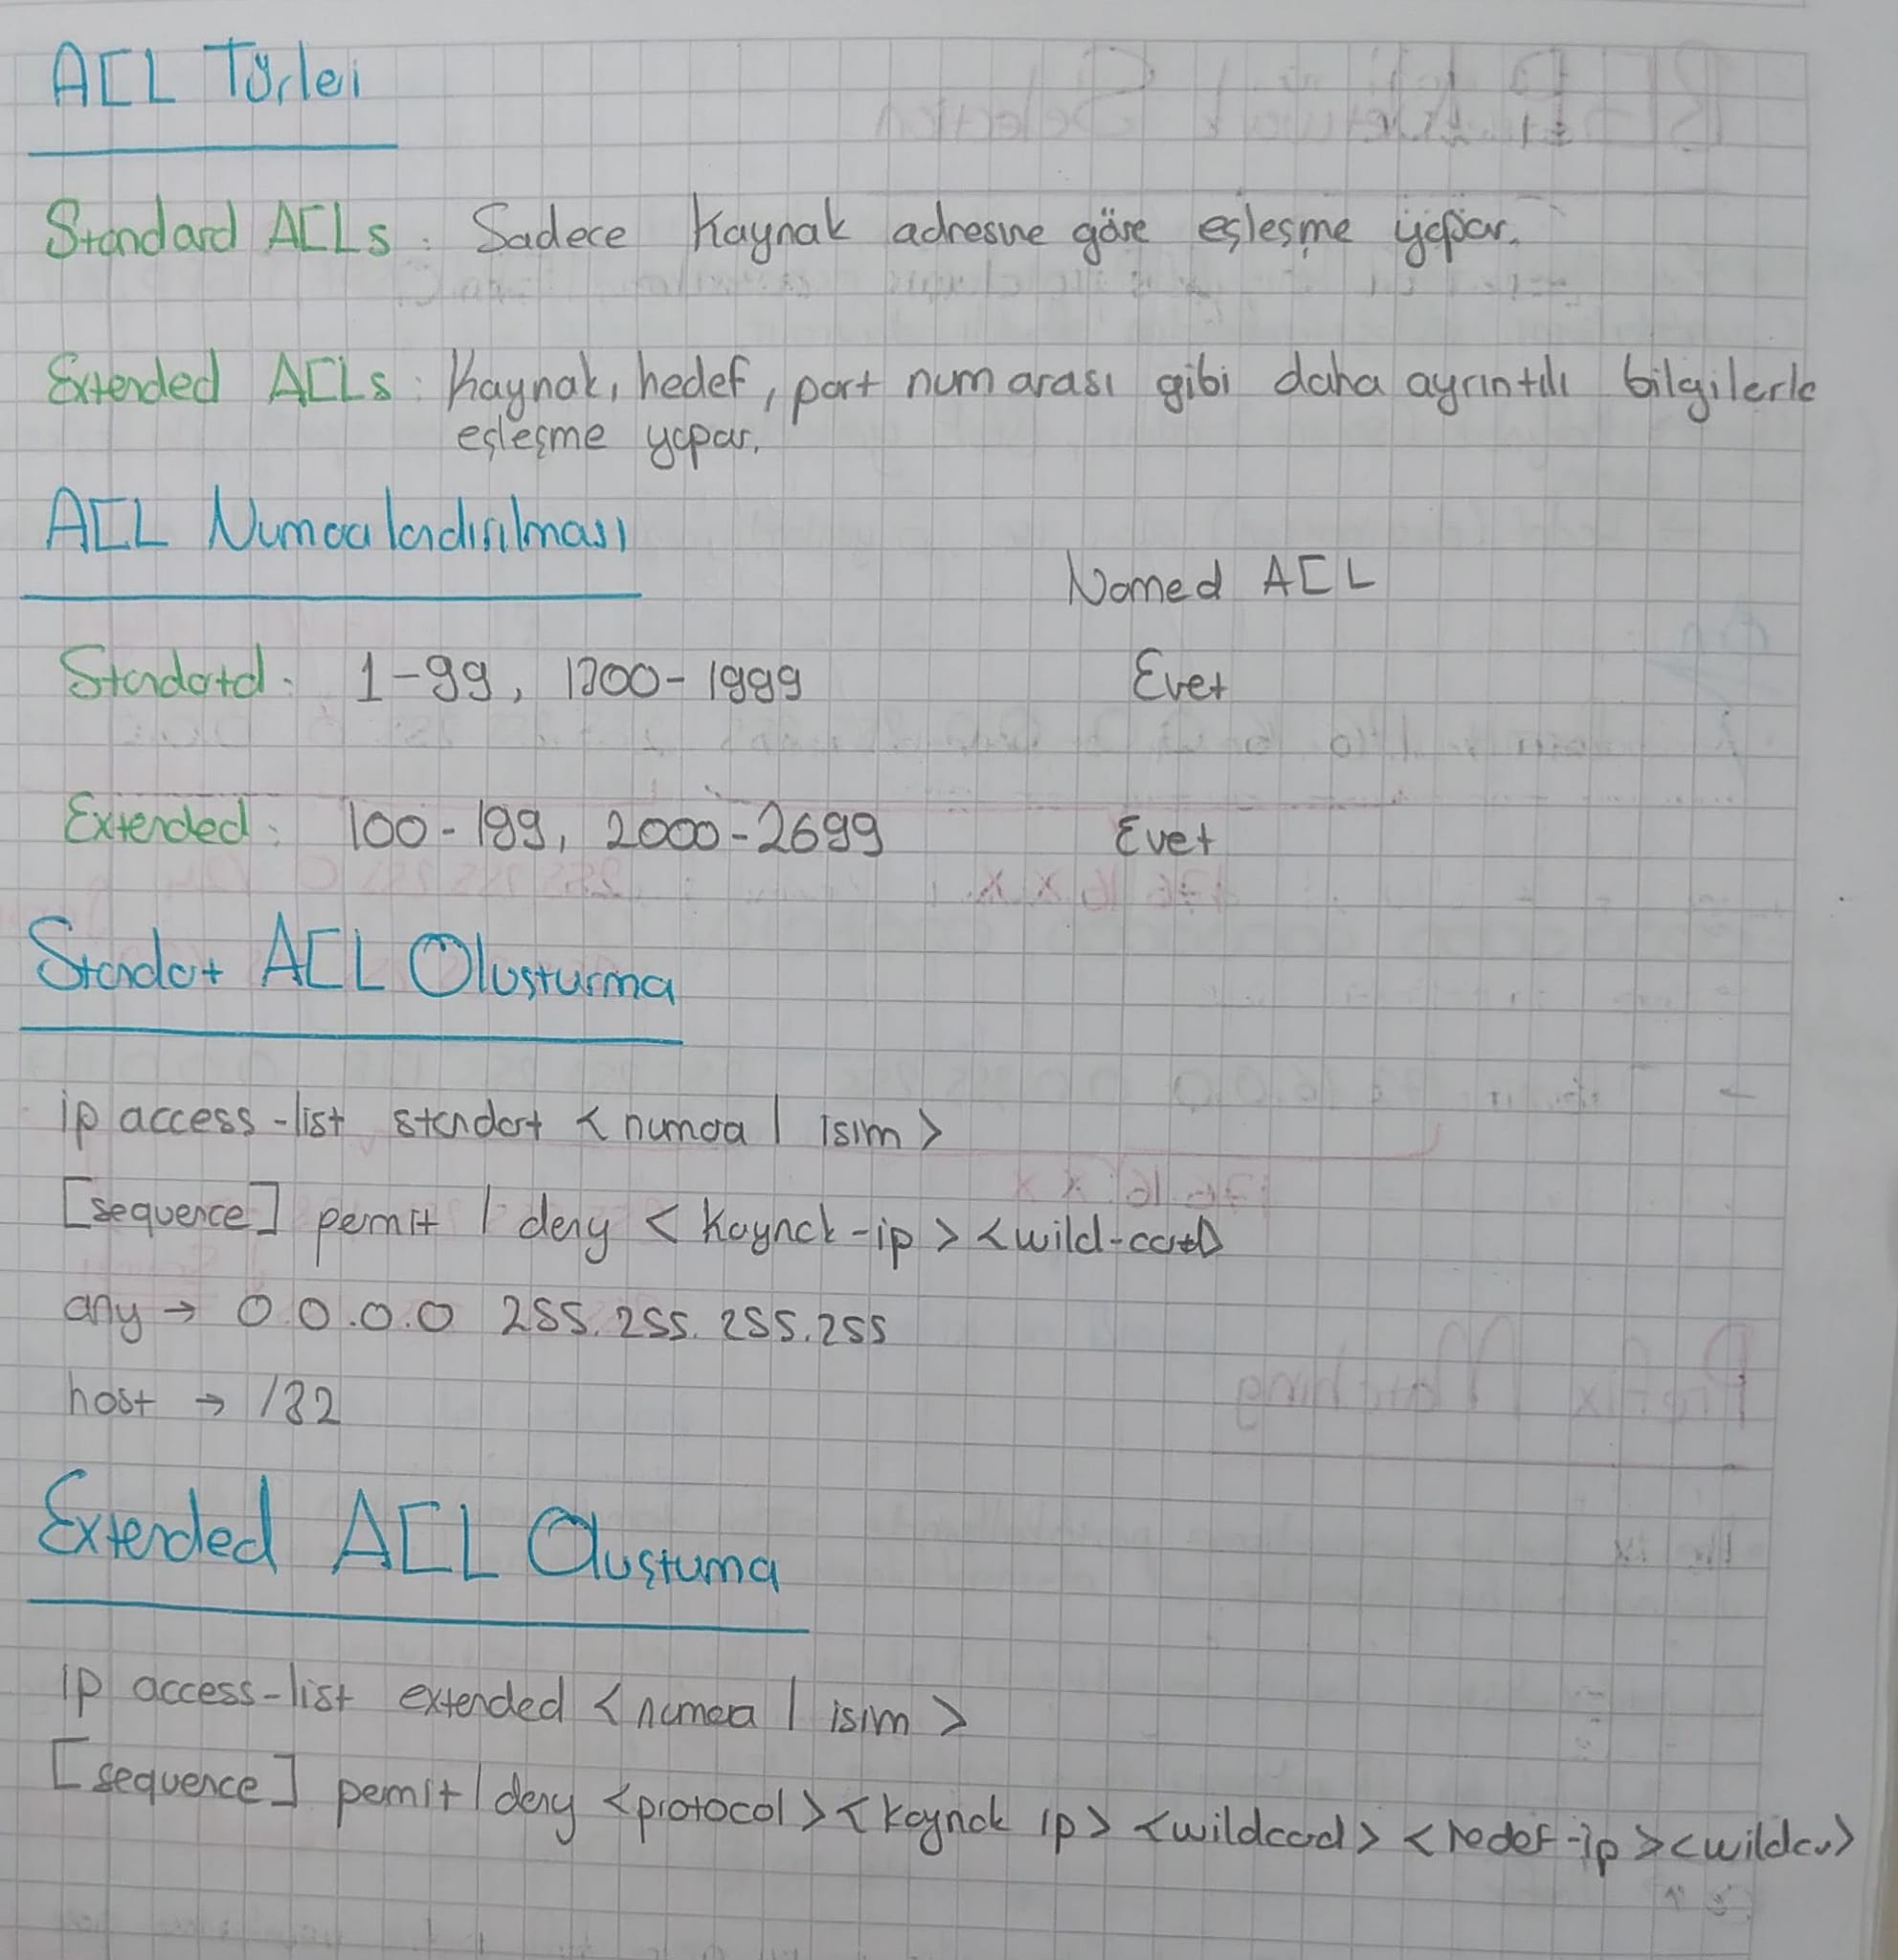 ACL Türleri
Standard ACLs: Sadece kaynak adresine göre eşleşme yapar.
Extended ACLs: Kaynak, hedef, port numarası gibi daha ayrıntılı bilgilerle
eşleşme yapar.
ACL Numaralandırılması
Named ACL
Standard: 1-99, 1300-1999 Evet
Extended: 100-199, 2000-2699 Evet
Standart ACL Oluşturma
ip access-list standart <numara | isim>
[sequence] permit | deny <kaynak-ip> <wild-card>
any → 0.0.0.0 255.255.255.255
host → /32
Extended ACL Oluşturma
ip access-list extended <numara | isim>
[sequence] permit | deny <protocol> <kaynak ip> <wildcard> <hedef-ip> <wildcar>